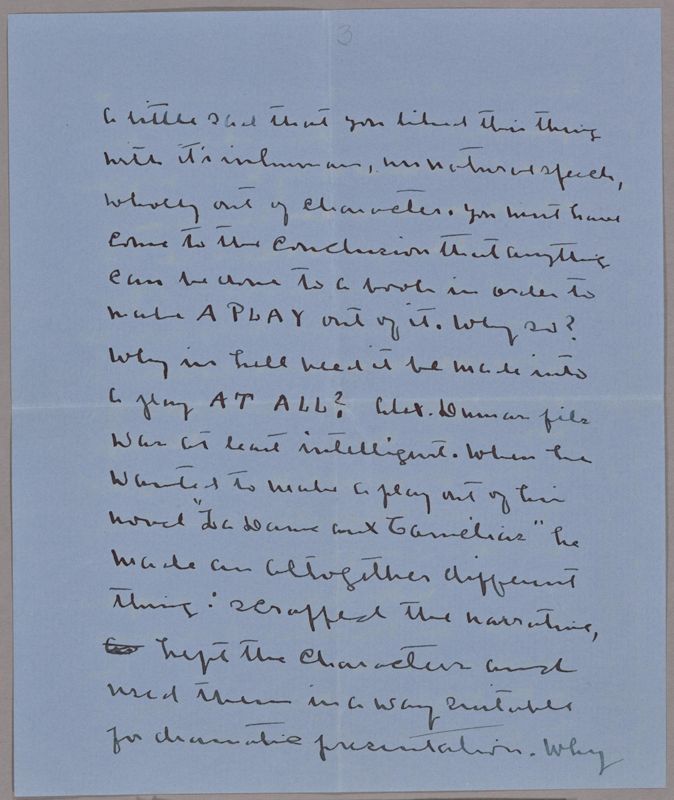 3
a little sad that you liked this thing
with it's inhuman, unnatural speech,
wholly out of character. You must have
come to the conclusion that anything
can be done to a book in order to
make A PLAY out of it. Why so?
Why in hell need it be made into
a play AT ALL? Alex. Dumas fils
was at least intelligent. When he
wanted to make a play out of his
novel "La Dame aux Camélias" he
made an altogether different
thing: scrapped the narrative,
kept the characters and
used them in a way suitable
for dramatic presentation. Why